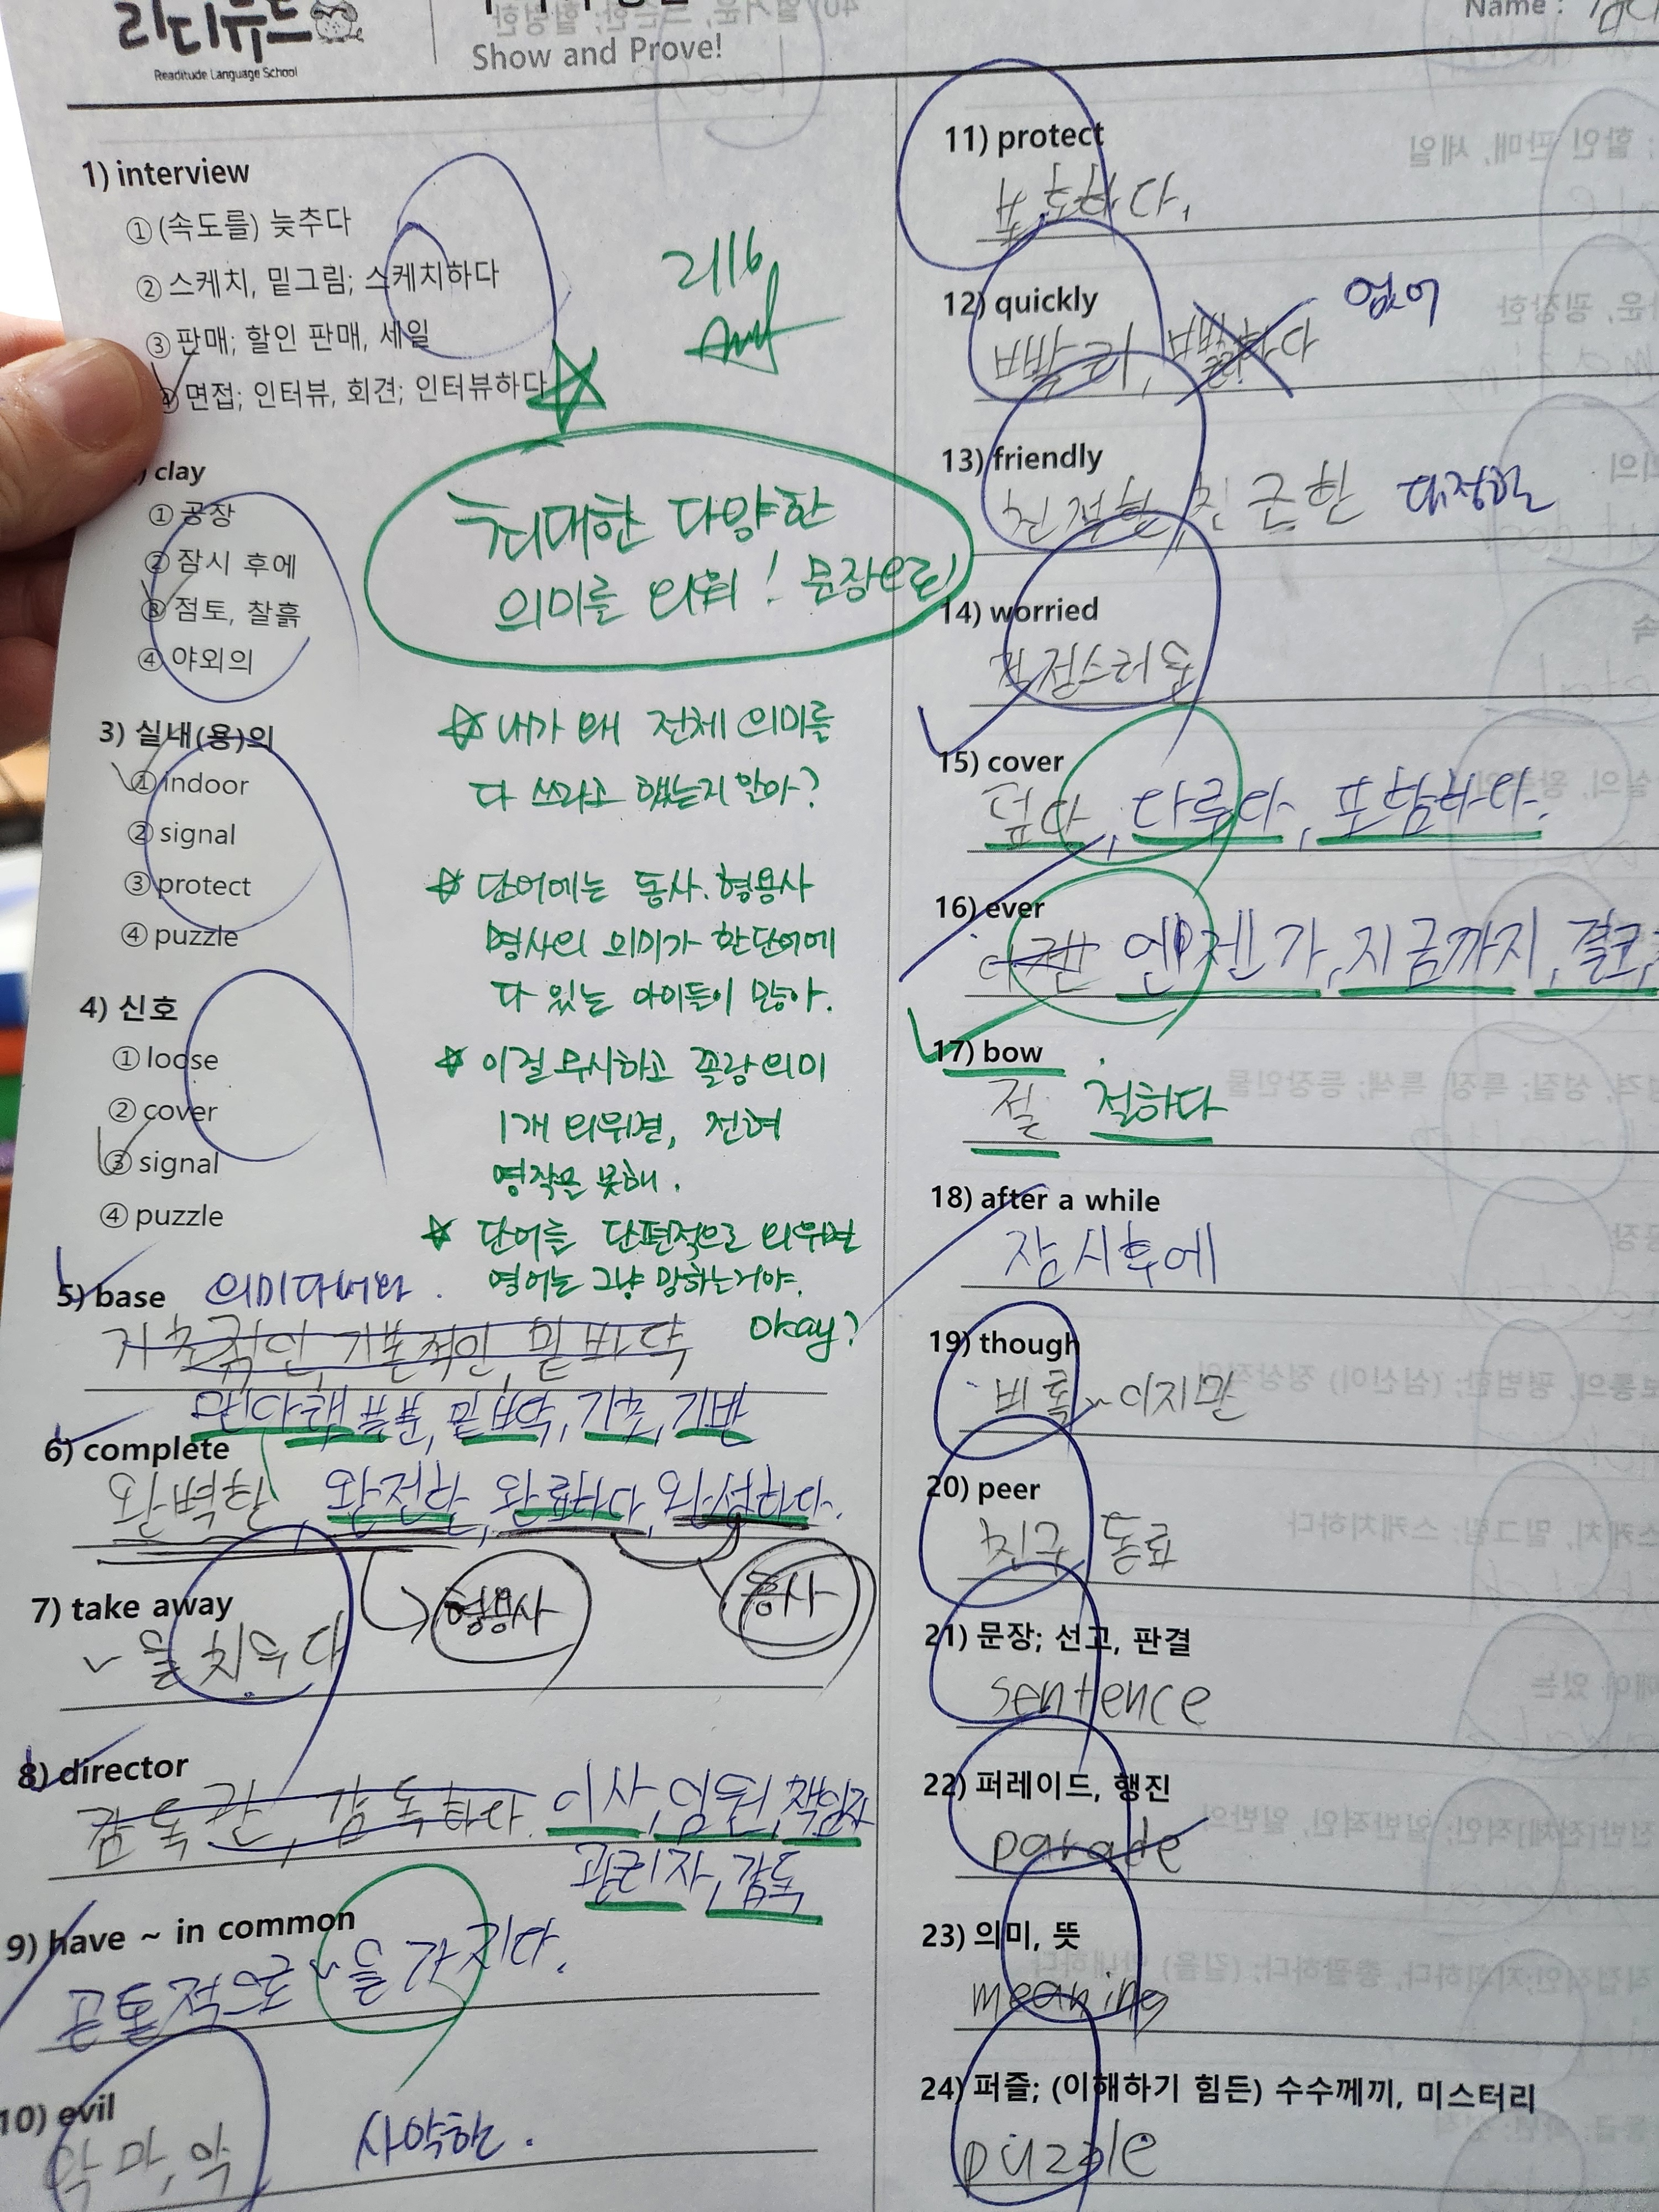 리디튜드
Readitude Language School
Show and Prove!
Name :
1) interview
① (속도를) 늦추다
② 스케치, 밑그림; 스케치하다
③ 판매; 할인 판매, 세일
④ 면접; 인터뷰, 회견; 인터뷰하다
clay
① 공장
② 잠시 후에
③ 점토, 찰흙
④ 야외의
3) 실내(용)의
① indoor
② signal
③ protect
④ puzzle
4) 신호
① loose
② cover
③ signal
④ puzzle
최대한 다양한
의미를 외워! 문장으로!
내가 왜 전체 의미를
다 쓰라고 했는지 알아?
단어에는 동사. 형용사
명사의 의미가 한단어에
다 있는 아이들이 많아.
이걸 무시하고 꼴랑 의미
1개 외우면, 전혀
영작을 못해.
단어를 단편적으로 외우면
영어는 그냥 망하는거야.
Okay?
5) base
기초적인, 기본적인, 밑바닥
맨 아래 부분, 밑바닥, 기초, 기반
6) complete
완벽한, 완전한, 완료하다, 완성하다.
형용사 동사
7) take away
~을 치우다
8) director
감독관, 감독하다. 이사, 임원, 책임자
관리자, 감독
9) have ~ in common
공통적으로 ~을 가지다.
10) evil
악마, 악 사악한.
11) protect
보호하다.
12) quickly
빠르게, 없어
13) friendly
친절한, 친근한 다정한
14) worried
걱정스러운
15) cover
덮다, 다루다, 포함하다.
16) ever
언젠가, 지금까지, 결코
17) bow
절 절하다
18) after a while
잠시후에
19) though
비록 ~이지만
20) peer
친구, 동료
21) 문장; 선고, 판결
sentence
22) 퍼레이드, 행진
parade
23) 의미, 뜻
meaning
24) 퍼즐; (이해하기 힘든) 수수께끼, 미스터리
puzzle